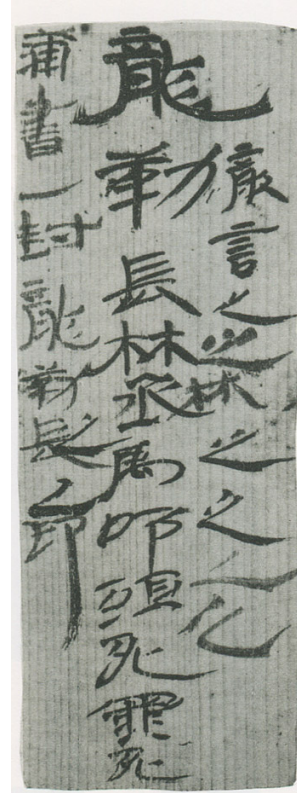 言之之林之之
龍勒長林丞禹叩頭死罪死
蒲書一封龍勒長之印